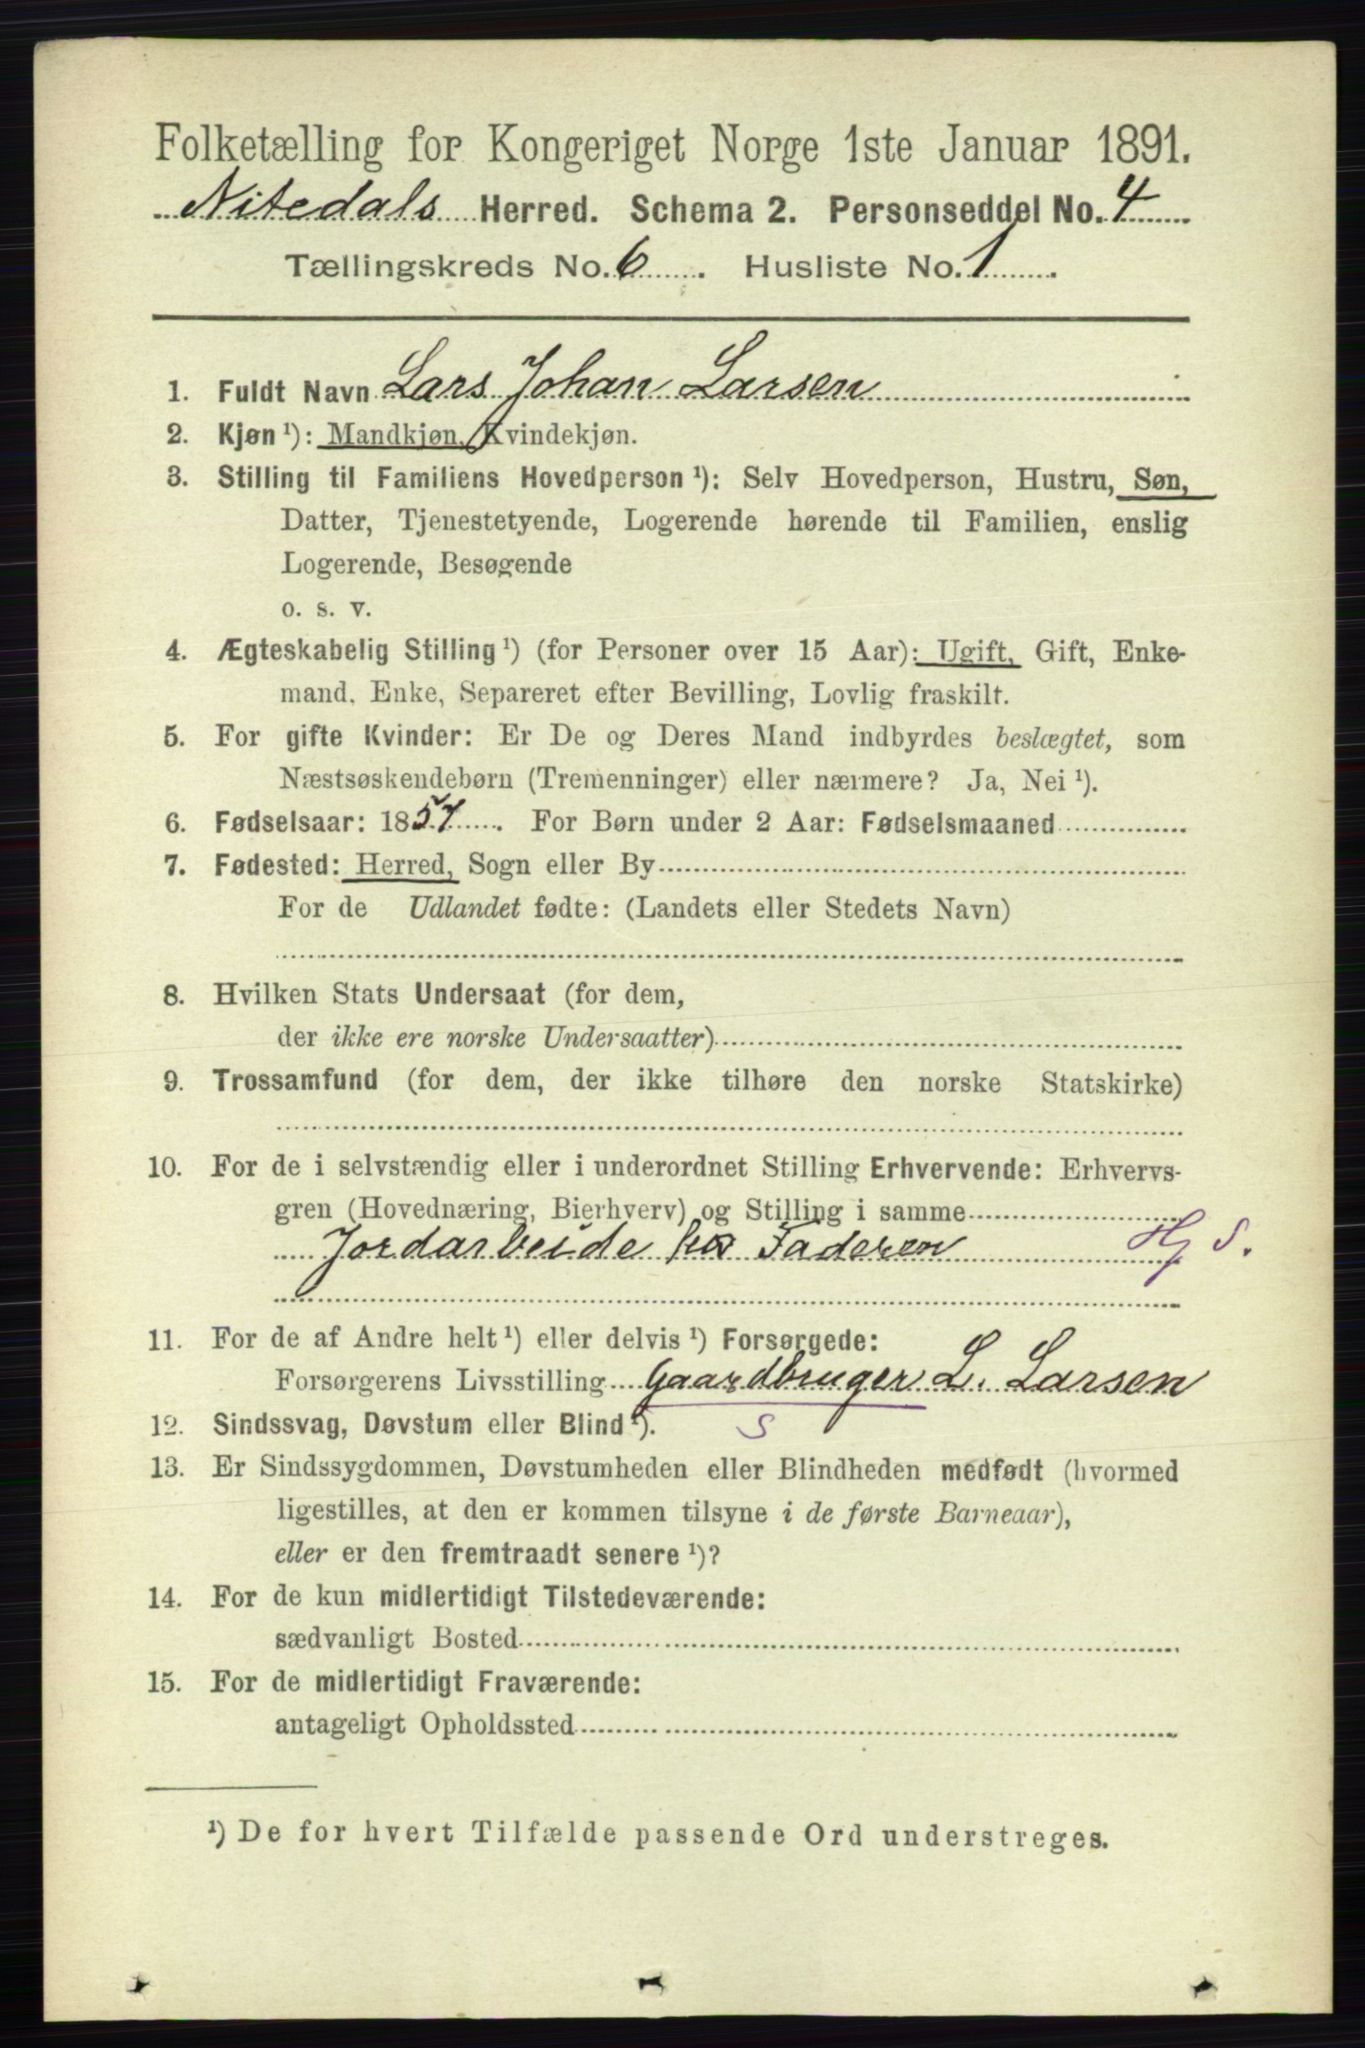 Folketælling for Kongeriget Norge 1ste Januar 1891.
Nitedals Herred. Schema 2. Personseddel No. 4
Tællingskreds No. 6. Husliste No. 1.
1. Fuldt Navn Lars Johan Larsen
2. Kjøn ¹): Mandkjøn, Kvindekjøn.
3. Stilling til Familiens Hovedperson ¹): Selv Hovedperson, Hustru, Søn,
Datter, Tjenestetyende, Logerende hørende til Familien, enslig
Logerende, Besøgende
o. s. v.
4. Ægteskabelig Stilling ¹) (for Personer over 15 Aar): Ugift, Gift, Enke-
mand, Enke, Separeret efter Bevilling, Lovlig fraskilt.
5. For gifte Kvinder: Er De og Deres Mand indbyrdes beslægtet, som
Næstsøskendebørn (Tremenninger) eller nærmere? Ja, Nei ¹).
6. Fødselsaar: 1857. For Børn under 2 Aar: Fødselsmaaned
7. Fødested: Herred, Sogn eller By
For de Udlandet fødte: (Landets eller Stedets Navn)
8. Hvilken Stats Undersaat (for dem,
der ikke ere norske Undersaatter)
9. Trossamfund (for dem, der ikke tilhøre den norske Statskirke)
10. For de i selvstændig eller i underordnet Stilling Erhvervende: Erhvervs-
gren (Hovednæring, Bierhverv) og Stilling i samme
Jordarbeide hos Faderen Hj S.
11. For de af Andre helt ¹) eller delvis ¹) Forsørgede:
Forsørgerens Livsstilling Gaardbruger L. Larsen
12. Sindssvag, Døvstum eller Blind ¹). S
13. Er Sindssygdommen, Døvstumheden eller Blindheden medfødt (hvormed
ligestilles, at den er kommen tilsyne i de første Barneaar),
eller er den fremtraadt senere ¹)?
14. For de kun midlertidigt Tilstedeværende:
sædvanligt Bosted
15. For de midlertidigt Fraværende:
antageligt Opholdssted
¹) De for hvert Tilfælde passende Ord understreges.